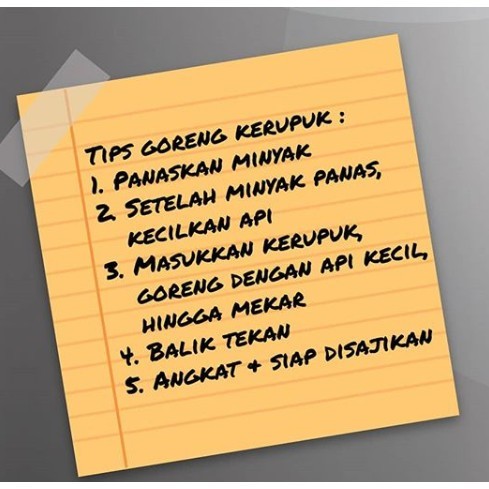 TIPS GORENG KERUPUK :
1. PANASKAN MINYAK
2. SETELAH MINYAK PANAS,
KECILKAN API
3. MASUKKAN KERUPUK,
GORENG DENGAN API KECIL,
HINGGA MEKAR
4. BALIK TEKAN
5. ANGKAT + SIAP DISAJIKAN